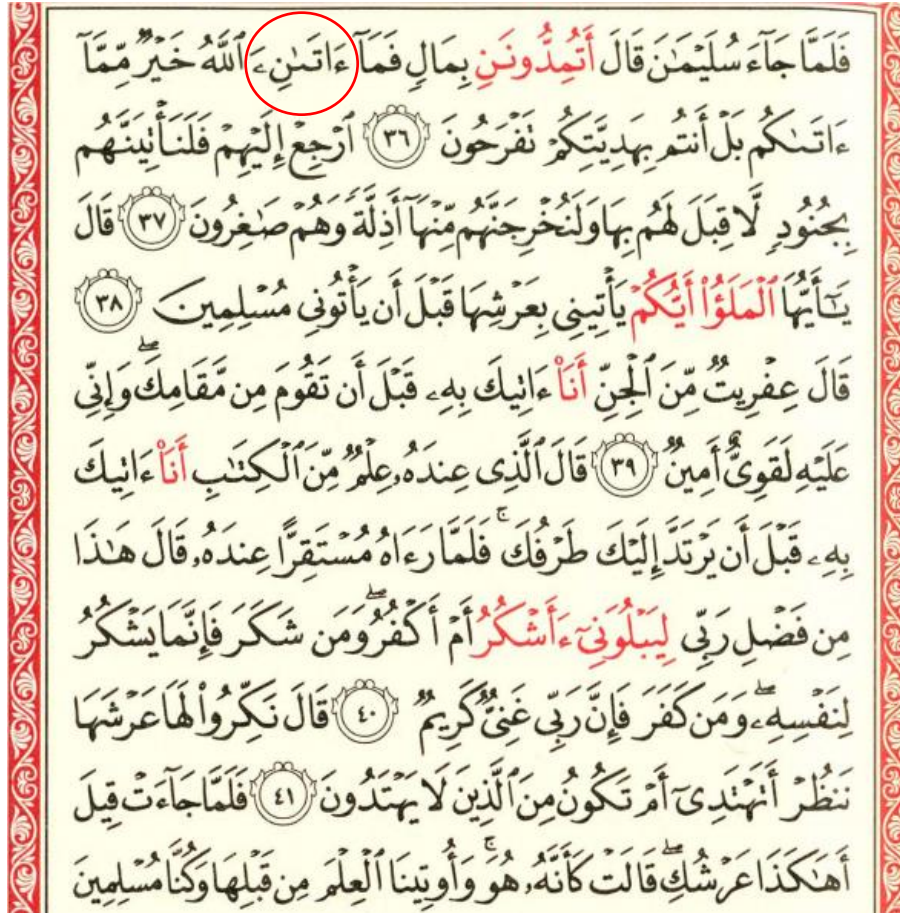 فَلَمَّا جَآءَ سُلَيْمَٰنَ قَالَ أَتُمِدُّونَنِ بِمَالٍ فَمَآ ءَاتَىٰنِۦَ ٱللَّهُ خَيْرٌ مِّمَّآ
ءَاتَىٰكُم بَلْ أَنتُم بِهَدِيَّتِكُمْ تَفْرَحُونَ ٣٦ ٱرْجِعْ إِلَيْهِمْ فَلَنَأْتِيَنَّهُم
بِجُنُودٍ لَّا قِبَلَ لَهُم بِهَا وَلَنُخْرِجَنَّهُم مِّنْهَآ أَذِلَّةً وَهُمْ صَٰغِرُونَ ٣٧ قَالَ
يَٰٓأَيُّهَا ٱلْمَلَؤُا۟ أَيُّكُمْ يَأْتِينِى بِعَرْشِهَا قَبْلَ أَن يَأْتُونِى مُسْلِمِينَ ٣٨
قَالَ عِفْرِيتٌ مِّنَ ٱلْجِنِّ أَنَا۠ ءَاتِيكَ بِهِۦ قَبْلَ أَن تَقُومَ مِن مَّقَامِكَ ۖ وَإِنِّى
عَلَيْهِ لَقَوِىٌّ أَمِينٌ ٣٩ قَالَ ٱلَّذِى عِندَهُۥ عِلْمٌ مِّنَ ٱلْكِتَٰبِ أَنَا۠ ءَاتِيكَ
بِهِۦ قَبْلَ أَن يَرْتَدَّ إِلَيْكَ طَرْفُكَ ۚ فَلَمَّا رَءَاهُ مُسْتَقِرًّا عِندَهُۥ قَالَ هَٰذَا
مِن فَضْلِ رَبِّى لِيَبْلُوَنِىٓ ءَأَشْكُرُ أَمْ أَكْفُرُ ۖ وَمَن شَكَرَ فَإِنَّمَا يَشْكُرُ
لِنَفْسِهِۦ ۖ وَمَن كَفَرَ فَإِنَّ رَبِّى غَنِىٌّ كَرِيمٌ ٤٠ قَالَ نَكِّرُوا۟ لَهَا عَرْشَهَا
نَنظُرْ أَتَهْتَدِىٓ أَمْ تَكُونُ مِنَ ٱلَّذِينَ لَا يَهْتَدُونَ ٤١ فَلَمَّا جَآءَتْ قِيلَ
أَهَٰكَذَا عَرْشُكِ ۖ قَالَتْ كَأَنَّهُۥ هُوَ ۚ وَأُوتِينَا ٱلْعِلْمَ مِن قَبْلِهَا وَكُنَّا مُسْلِمِينَ